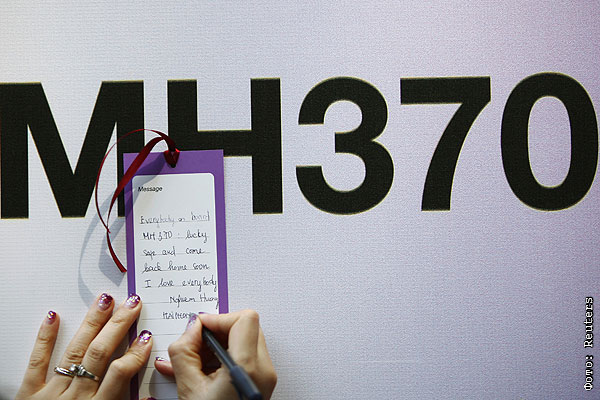 MH370
Message
Everybody on board
MH370 lucky
safe and come
back home soon
I love everybody
Huong
Фото: Reuters